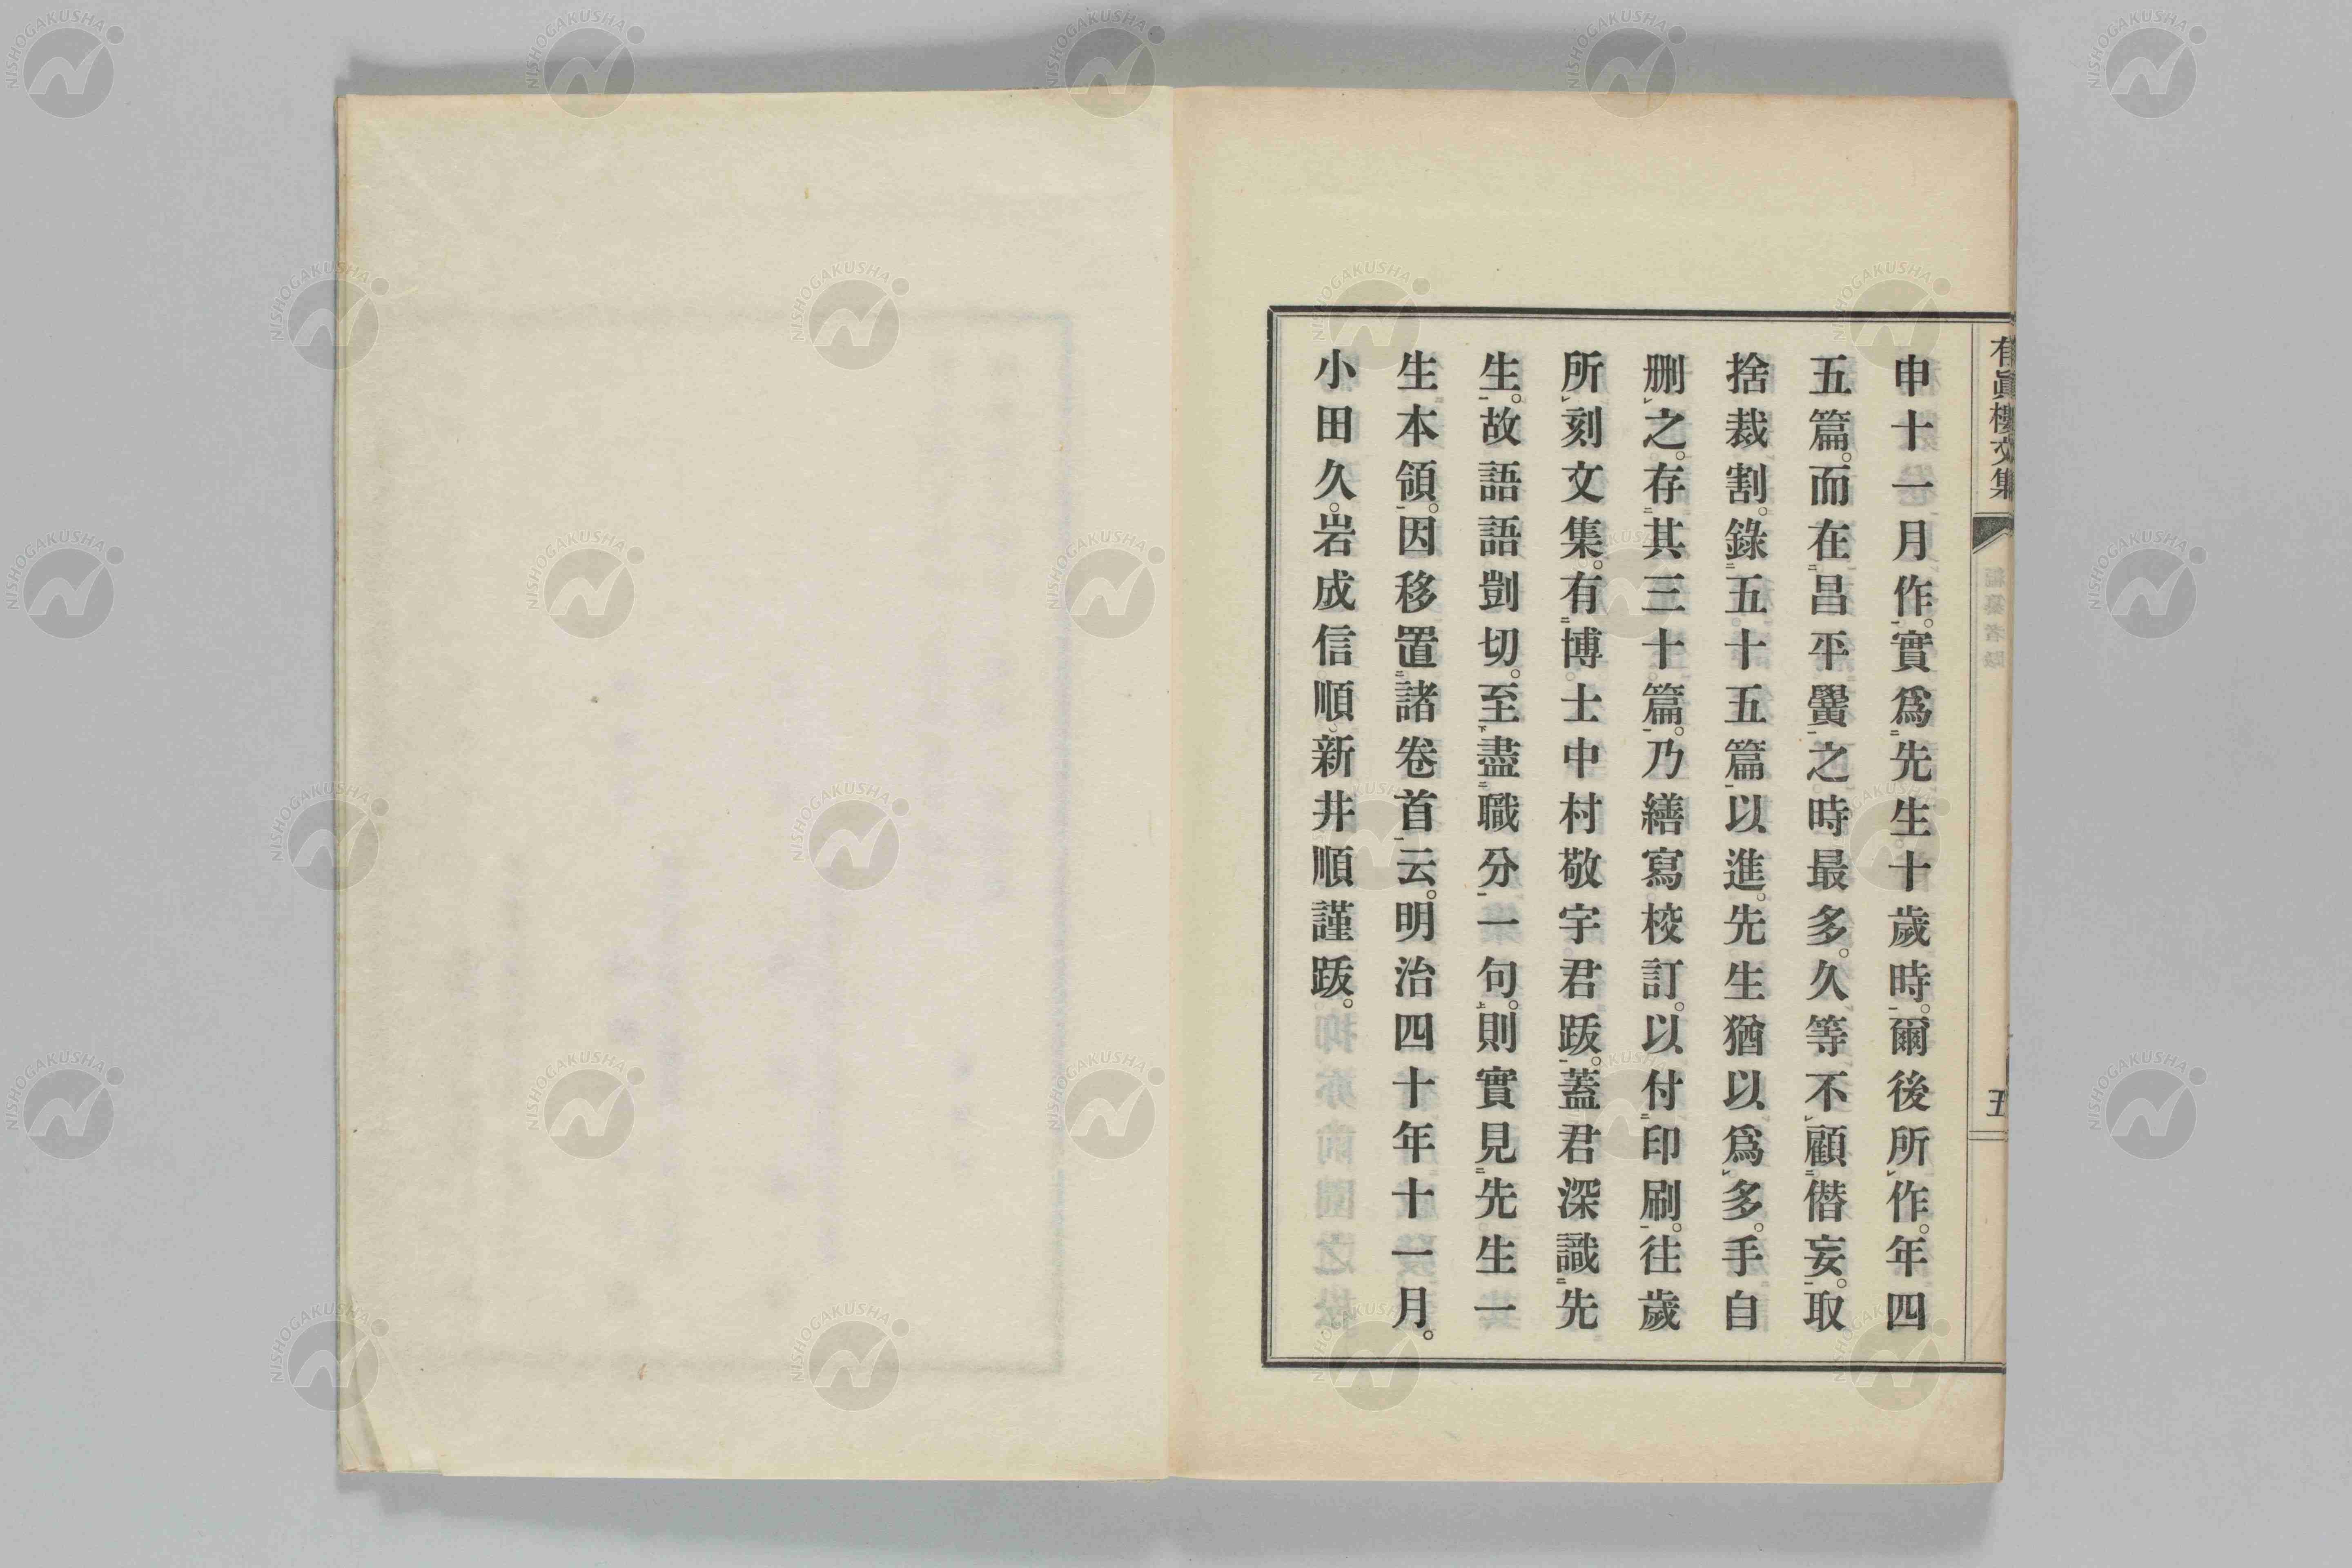 有眞樓文集
五
申十一月作。實爲先生十歲時。爾後所作。年四
五篇。而在昌平黌之時最多。久等不顧僭妄。取
捨裁割。錄五十五篇以進。先生猶以爲多。手自
删之。存其三十篇。乃繕寫校訂。以付印刷。往歲
所刻文集。有博士中村敬宇君跋。蓋君深識先
生。故語語剴切。至盡職分一句。則實見先生一
生本領。因移置諸卷首云。明治四十年十一月。
小田久。岩成信順新井順謹跋。